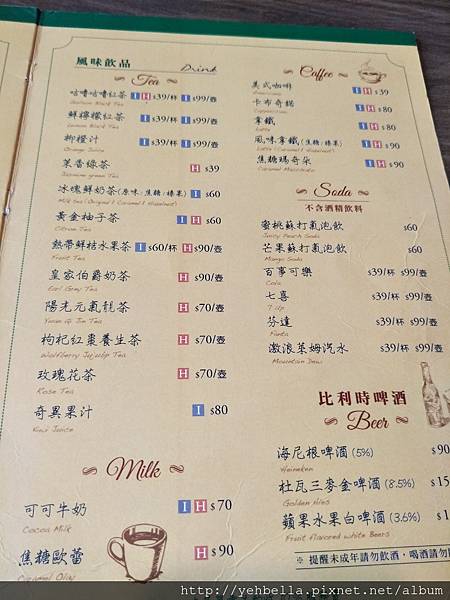 風味飲品 Drink
Tea
咕嚕咕嚕紅茶 I H $39/杯 I $99/壺
Gulum Black Tea
鮮檸檬紅茶 I H $39/杯 I $99/壺
Lemon Black Tea
柳橙汁 I $39/杯 I $99/壺
Orange Juice
茉香綠茶 H $39
Jasmine green Tea
冰塊鮮奶茶(原味:焦糖:榛果) I $60
Milk tea (Original / Caramel / Hazelnut)
黃金柚子茶 I H $60
Citron Tea
熱帶鮮桔水果茶 I $60/杯 H $90/壺
Fruit Tea
皇家伯爵奶茶 H $90/壺
Earl Grey Tea
陽光元氣龍茶 H $70/壺
Yuan Qi Jin Tea
枸杞紅棗養生茶 H $70/壺
Wolfberry Jujube Tea
玫瑰花茶 H $70/壺
Rose Tea
奇異果汁 I $80
Kiwi Juice
Milk
可可牛奶 I H $70
Cocoa Milk
焦糖歐蕾 H $90
Caramel Olay
Coffee
美式咖啡 I H $39
Americano
卡布奇諾 I H $80
Cappuccino
拿鐵 I H $80
Latte
風味拿鐵(焦糖:榛果) I H $90
Latte (Caramel / Hazelnut)
焦糖瑪奇朵 I H $90
Caramel Macchiato
Soda
不含酒精飲料
蜜桃蘇打氣泡飲 $60
Juicy Peach Soda
芒果蘇打氣泡飲 $60
Mango Soda
百事可樂 $39/杯 $99/壺
Cola
七喜 $39/杯 $99/壺
7 up
芬達 $39/杯 $99/壺
Fanta
激浪萊姆汽水 $39/杯 $99/壺
Mountain Dew
比利時啤酒
Beer
海尼根啤酒 (5%) $90
Heineken
杜瓦三麥金啤酒 (8.5%) $15
Golden Ales
蘋果水果白啤酒 (3.6%) $1
Fruit flavored white Beers
※ 提醒未成年請勿飲酒,喝酒請勿
http://yehbella.pixnet.net/album